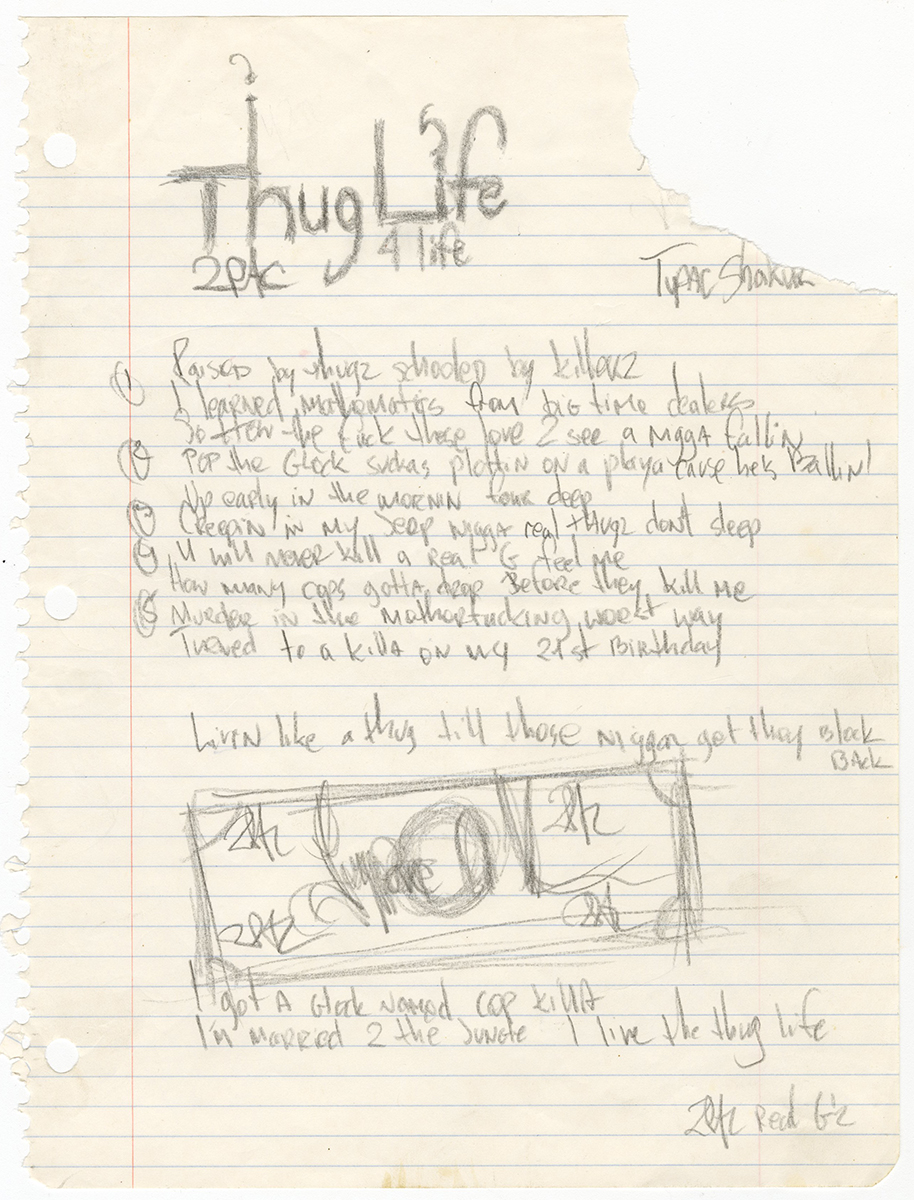 Thug Life
2PAC 4 life
Tupac Shakur
1 Raised by thugz schooled by killerz
I learned mathematics from big time dealers
So How the fuck those love 2 see a nigga fallin
2 Pop the Glock suckas plottin on a playa cause he's Ballin!
3 Up early in the mornin four deep
Creepin in my Jeep nigga real thugz don't sleep
4 U will never kill a real G feel me
How many cops gotta drop Before they kill me
5 Murder in the motherfucking worst way
Turned to a killa on my 21st Birthday
Livin like a thug till those niggaz get they Block
Back
I got A Glock named cop killA
I'm married 2 the Jungle I live the thug life
Real G'z